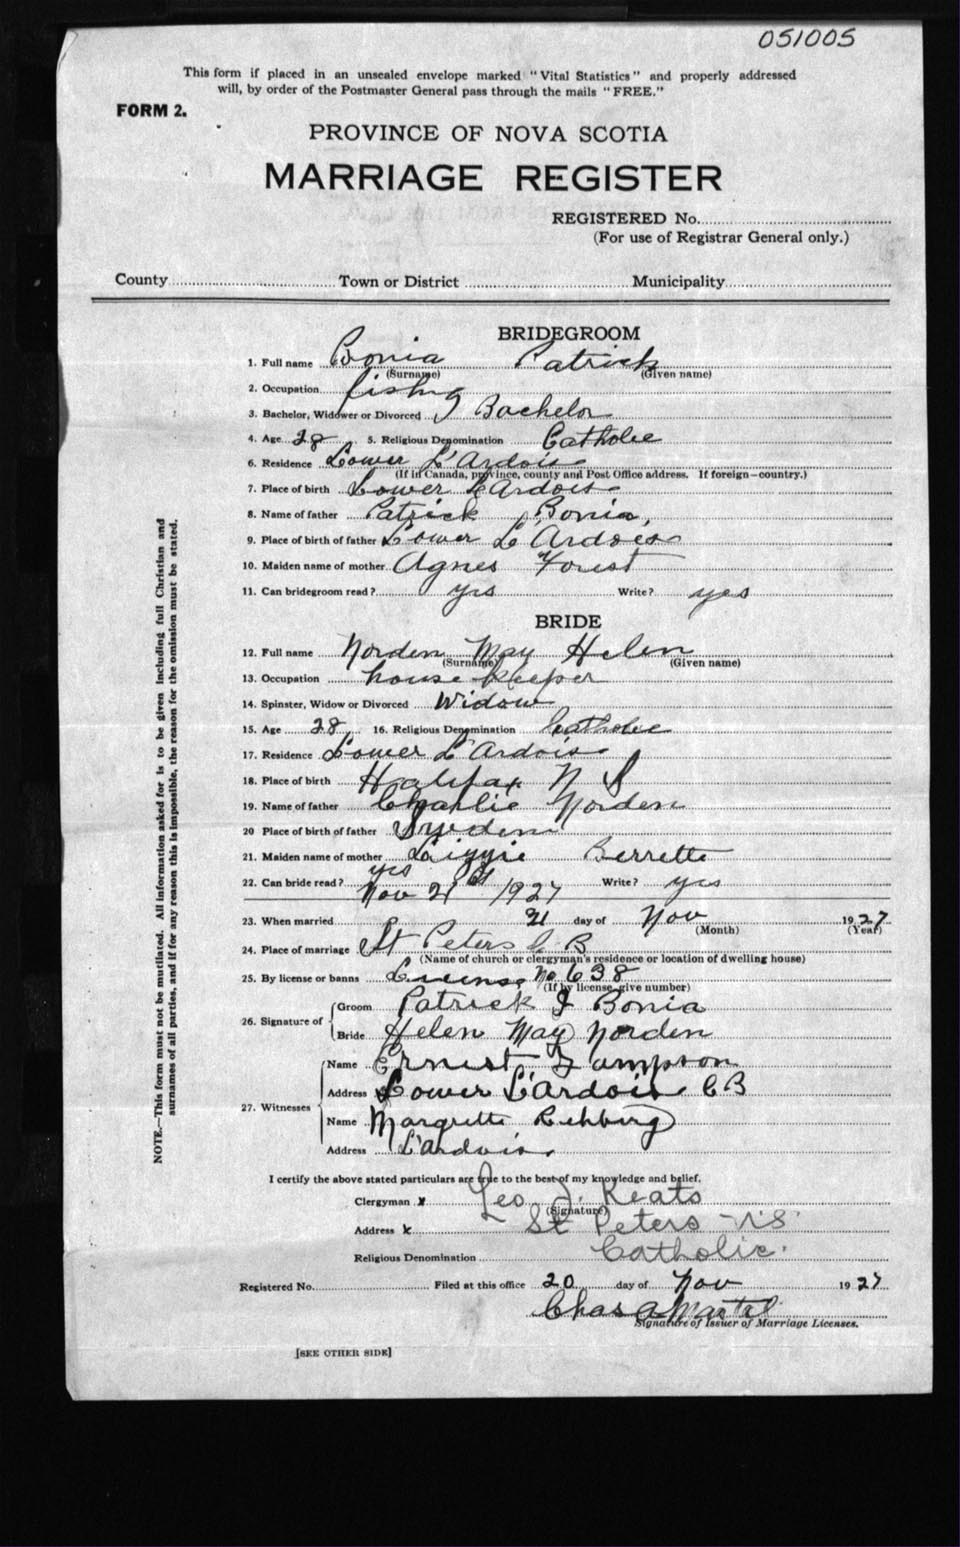 051005
This form if placed in an unsealed envelope marked "Vital Statistics" and properly addressed
will, by order of the Postmaster General pass through the mails "FREE."
FORM 2.
PROVINCE OF NOVA SCOTIA
MARRIAGE REGISTER
REGISTERED No.
(For use of Registrar General only.)
County Town or District Municipality
BRIDEGROOM
1. Full name Bonia Patrick
(Surname) (Given name)
2. Occupation fishing
3. Bachelor, Widower or Divorced Bachelor
4. Age 28 5. Religious Denomination Catholic
6. Residence Lower L'Ardois
(If in Canada, province, county and Post Office address. If foreign—country.)
7. Place of birth Lower L'Ardois
8. Name of father Patrick Bonia,
9. Place of birth of father Lower L'Ardois
10. Maiden name of mother Agnes Forest
11. Can bridegroom read? yes Write? yes
BRIDE
12. Full name Norden May Helen
(Surname) (Given name)
13. Occupation house keeper
14. Spinster, Widow or Divorced Widow
15. Age 28 16. Religious Denomination Catholic
17. Residence Lower L'Ardois
18. Place of birth Halifax N S
19. Name of father Charlie Norden
20 Place of birth of father Sweden
21. Maiden name of mother Lizzie Berrette
22. Can bride read? yes Write? yes
Nov 21st 1927
23. When married 21 day of Nov 1927
(Month) (Year)
24. Place of marriage St Peters C. B
(Name of church or clergyman's residence or location of dwelling house)
25. By license or banns License No 638
(If by license, give number)
26. Signature of
Groom Patrick J Bonia
Bride Helen May Norden
27. Witnesses
Name Ernest Sampson
Address Lower L'Ardois C B
Name Margrette
Address L'Ardois.
I certify the above stated particulars are true to the best of my knowledge and belief.
Clergyman x Leo J. Keats
(Signature)
Address x St Peters - N.S.
Religious Denomination Catholic.
Registered No. Filed at this office 20 day of Nov 1927
Chas A Martel
Signature of Issuer of Marriage Licenses.
[SEE OTHER SIDE]
NOTE.—This form must not be mutilated. All information asked for is to be given including full Christian and
surnames of all parties, and if for any reason this is impossible, the reason for the omission must be stated.